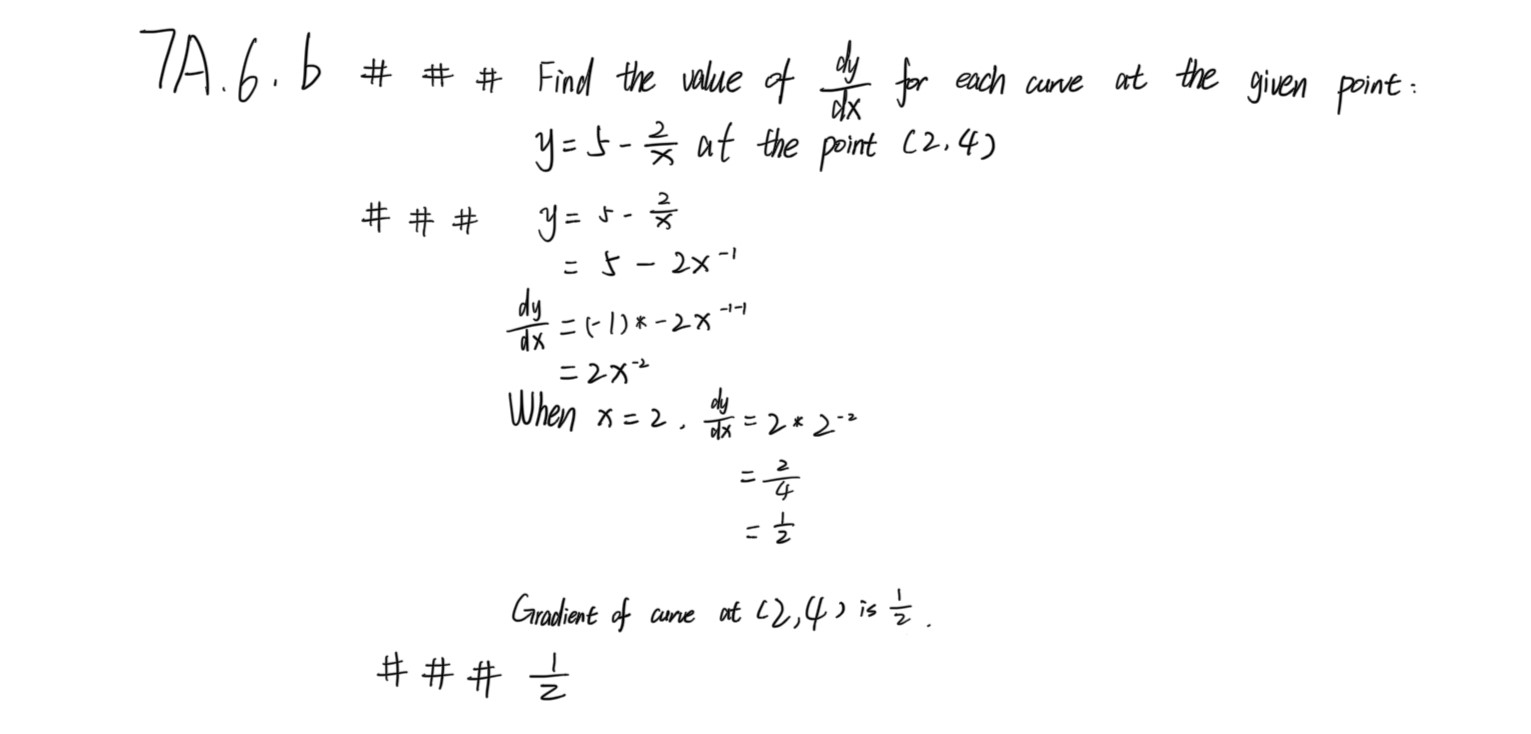 7A.6.b # # # Find the value of dy/dx for each curve at the given point:
y = 5 - 2/x at the point (2,4)
# # # y = 5 - 2/x
= 5 - 2x⁻¹
dy/dx = (-1) * -2x⁻¹⁻¹
= 2x⁻²
When x = 2, dy/dx = 2 * 2⁻²
= 2/4
= 1/2
Gradient of curve at (2,4) is 1/2.
# # # 1/2